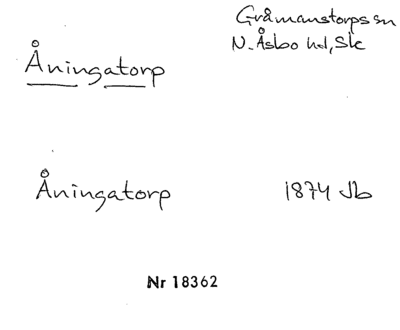 Gråmanstorps sn
N. Åsbo hd, Sk
Åningatorp
Åningatorp 1874 Jb
Nr 18362